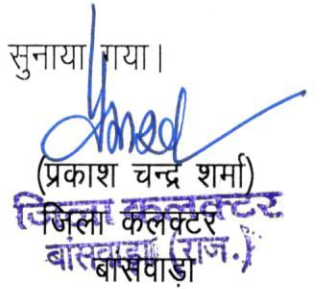 सुनाया गया।
(प्रकाश चन्द्र शर्मा)
जिला कलक्टर
जिला कलक्टर
बांसवाड़ा (राज.)
बांसवाड़ा